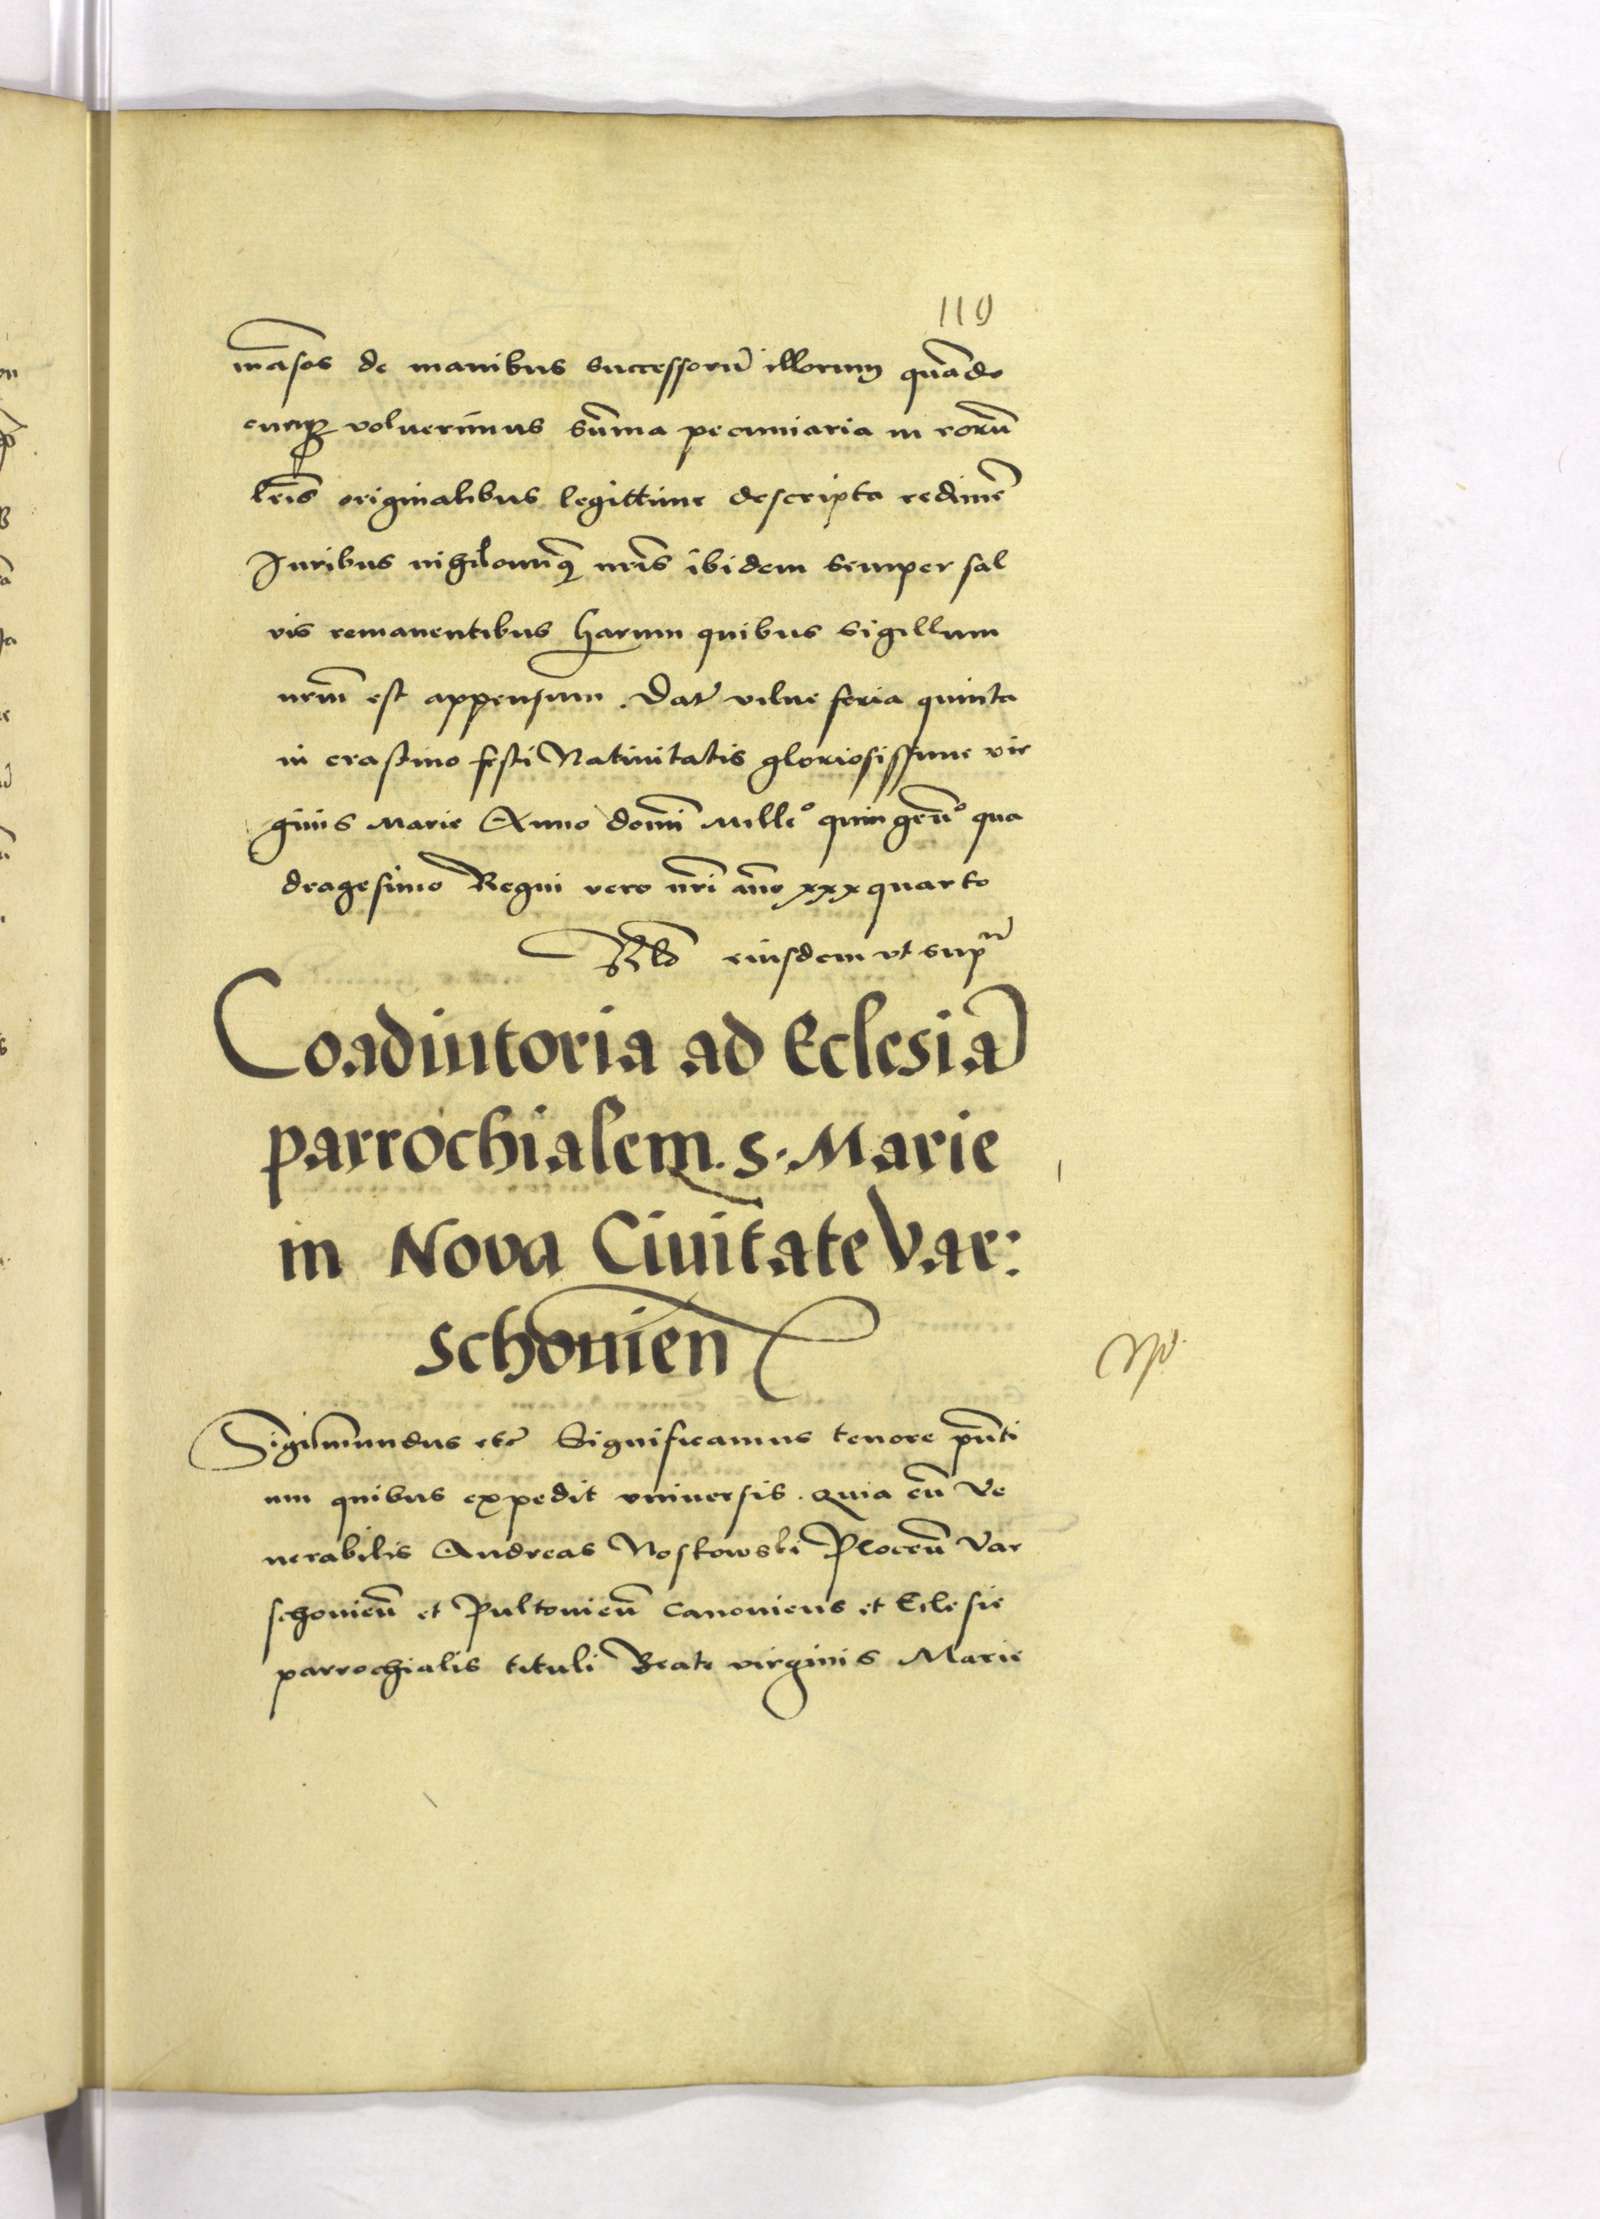 110
mãsos de manibus successorũ illorum quãdo
cunq̃ voluerimus sũma pecuniaria in eorũ
lr̃is originalibus legittime descripta redimẽ
Juribus nihilominꝰ nr̃is ibidem semper sal
vis remanentibus harum quibus sigillum
nrm̃ est appensum. Dat̃ vilne feria quinta
in crastino festi Natiuitatis gloriosissime vir
ginis Marie Anno domĩ Mille° quingeñ° qua
dragesimo Regni vero nrĩ año xxx quarto
Rl̃o eiusdem vt sup̃
Coadiutoria ad Eclesiã
parrochialem. S. Marie
in Nova Ciuitate Var:
schouien̄
Sigismundus etc̃ Significamus tenore pñti
um quibus expedit vniuersis. Quia cũ Ve
nerabilis Andreas Noskowski Ploceñ Var
schouieñ et Pultouieñ Canonicus et Eclesie
parrochialis tituli Beate virginis Marie